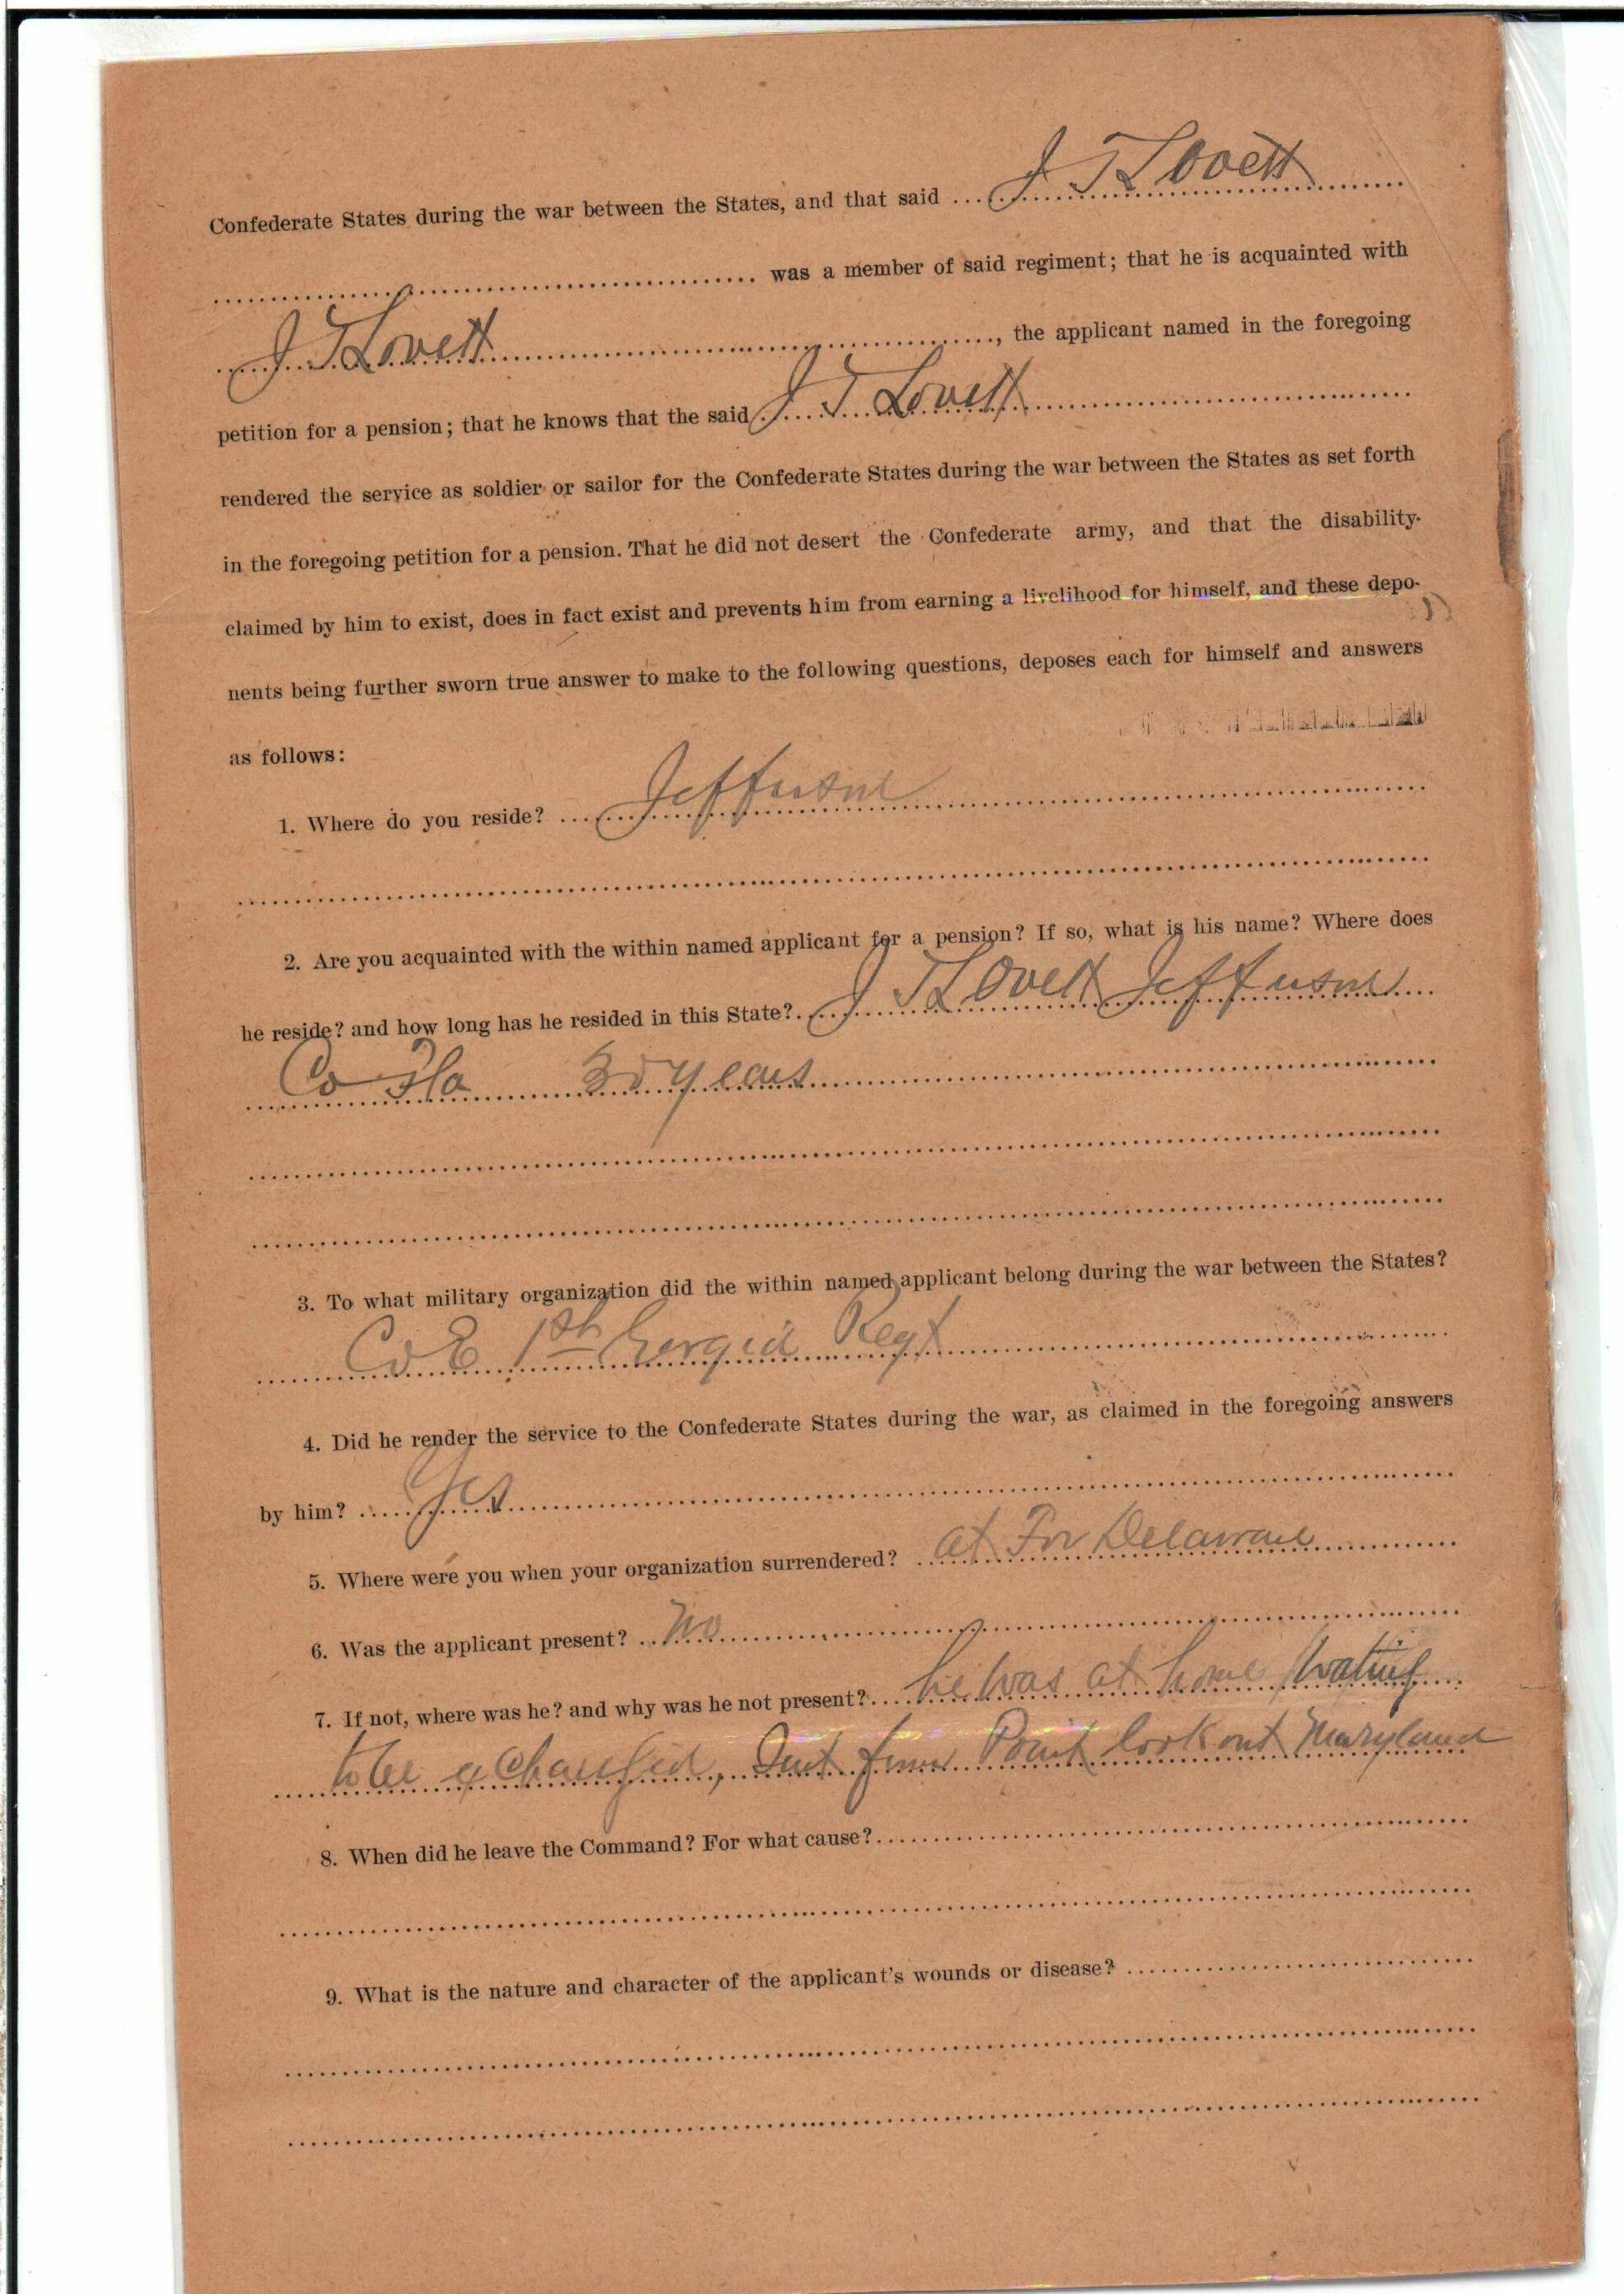 Confederate States during the war between the States, and that said J T Lovett
was a member of said regiment; that he is acquainted with
J T Lovett, the applicant named in the foregoing
petition for a pension; that he knows that the said J T Lovett
rendered the service as soldier or sailor for the Confederate States during the war between the States as set forth
in the foregoing petition for a pension. That he did not desert the Confederate army, and that the disability
claimed by him to exist, does in fact exist and prevents him from earning a livelihood for himself, and these depo-
nents being further sworn true answer to make to the following questions, deposes each for himself and answers
as follows:
1. Where do you reside? Jefferson
2. Are you acquainted with the within named applicant for a pension? If so, what is his name? Where does
he reside? and how long has he resided in this State? J T Lovett Jefferson
Co Fla years
3. To what military organization did the within named applicant belong during the war between the States?
Co E 1st Gorgia Regt
4. Did he render the service to the Confederate States during the war, as claimed in the foregoing answers
by him? Yes
5. Where were you when your organization surrendered? at For Delaware
6. Was the applicant present? No
7. If not, where was he? and why was he not present? he was at home wating
to be exchanged, Sent from Point look out Maryland
8. When did he leave the Command? For what cause?
9. What is the nature and character of the applicant's wounds or disease?